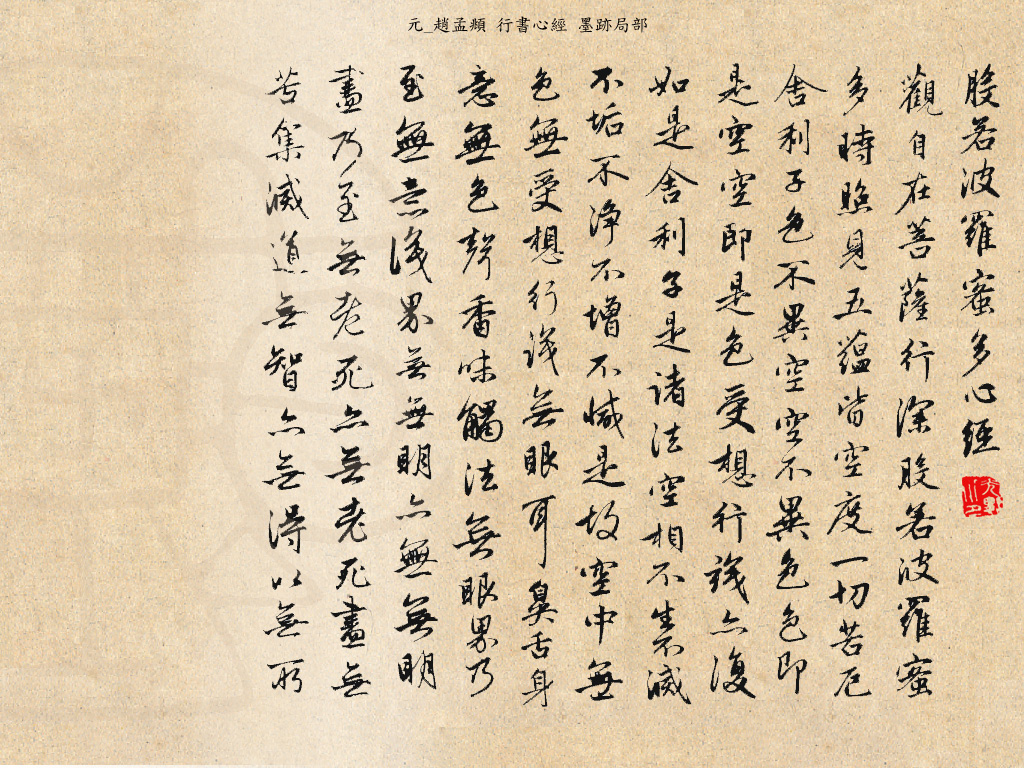 元_趙孟頫 行書心經 墨跡局部
般若波羅蜜多心經
觀自在菩薩行深般若波羅蜜
多時照見五蘊皆空度一切苦厄
舍利子色不異空空不異色色即
是空空即是色受想行識亦復
如是舍利子是諸法空相不生不滅
不垢不淨不增不減是故空中無
色無受想行識無眼耳鼻舌身
意無色聲香味觸法無眼界乃
至無意識界無無明亦無無明
盡乃至無老死亦無老死盡無
苦集滅道無智亦無得以無所